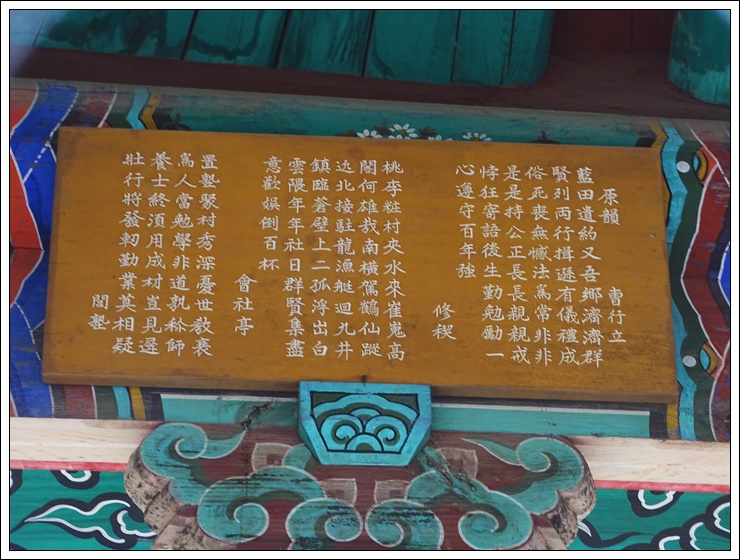 原韻 曺行立
藍田遺約又吾鄉濟濟群
賢列両行揖遜有儀禮成
俗死喪無憾法爲常非非
是是持公正長長親親戒
悖狂寄語後生勤勉勵一
心遵守百年強
修稧
桃李粧村夾水來崔嵬高
閣何雄哉南橫駕鶴仙蹤
北接駐龍漁艇迴九井
鎮臨蒼壁上二孤浮出白
雲隈年年社日群賢集盡
意歡娛倒百杯
會社亭
置塾聚村秀深憂世教衰
爲人當勉學非道孰称師
養士終須用成材豈見遲
壯行將發軔勤業莫相疑
閭塾